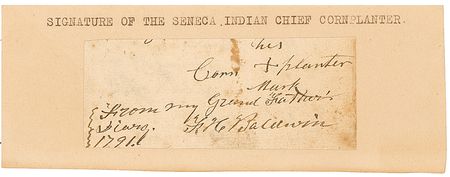 SIGNATURE OF THE SENECA INDIAN CHIEF CORNPLANTER.
his
Corn + planter
Mark
From my Grand Father's
Diary.
1791.
Baldwin